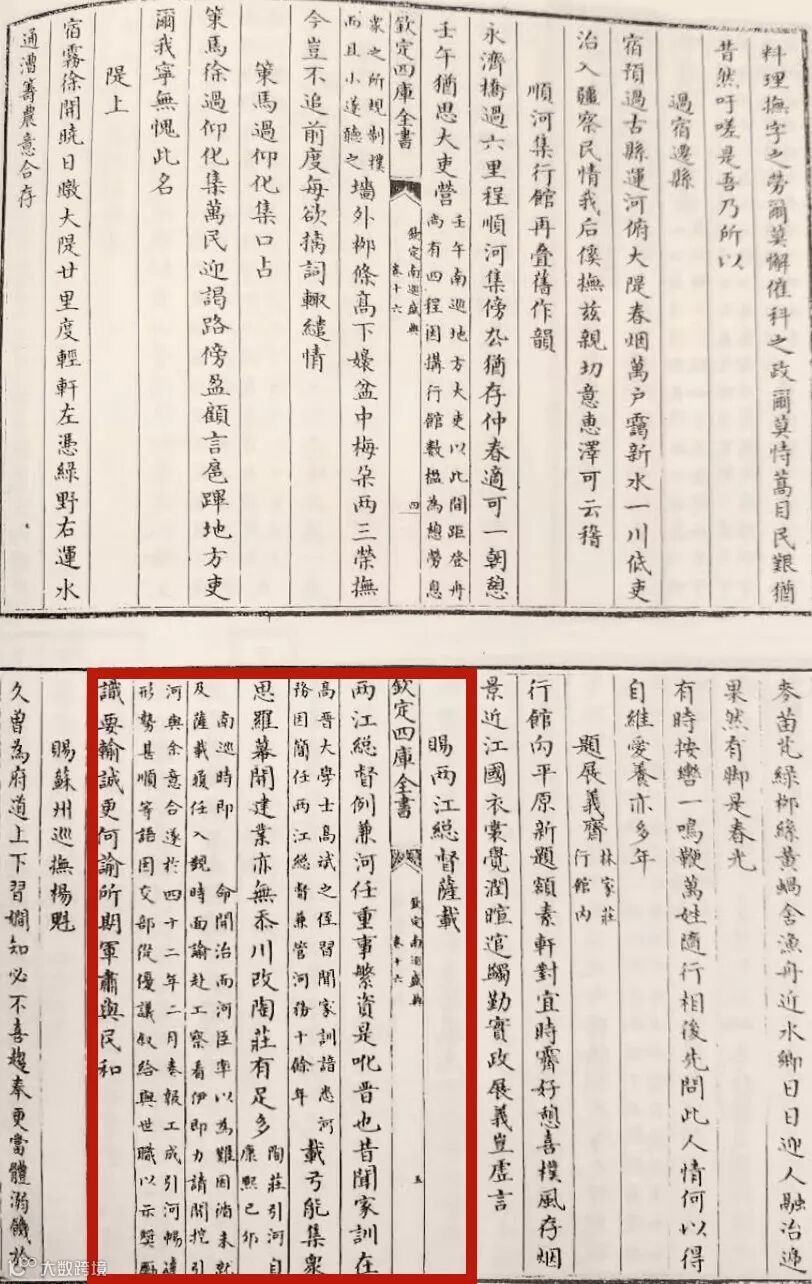 料理撫字之勞爾莫懈催科之政爾莫恃蒿目民艱猶
昔然吁嗟是吾乃所以
過宿遷縣
宿預過古縣運河俯大隄春烟萬户靄新水一川低吏
治入疆察民情我后傒撫兹親切意惠澤可云稽
順河集行館再叠舊作韻
永濟橋過六里程順河集傍猶存仲春適可一朝憩
壬午猶思大吏營
壬午南巡地方大吏以此間距登舟
尚有四程因搆行館數楹為憩勞息
欽定四庫全書
欽定南巡盛典
卷十六
四
衆之所規制樸
而且小遂聽之
牆外柳條高下嫋盆中梅朶兩三榮撫
今豈不追前度每欲摛詞輒繾情
策馬過仰化集口占
策馬徐過仰化集萬民迎謁路傍盈顧言扈蹕地方吏
爾我寧無愧此名
隄上
宿霧徐開曉日暾大隄廿里度輕軒左憑綠野右運水
通漕籌農意合存
麥苗芃綠柳絲黃蝸舍漁舟近水鄉日日迎人融冶遞
果然有脚是春光
有時按轡一鳴鞭萬姓隨行相後先問此人情何以得
自維愛養亦多年
題展義齋
林家莊
行館内
行館向平原新題額素軒對宜時霽好憩喜樸風存烟
景近江國衣裳覺潤暄逭觸勤實政展義豈虛言
賜兩江總督薩載
欽定四庫全書
欽定南巡盛典
卷十六
五
兩江總督例兼河任重事繁資是吪昔也昔聞家訓在
高晉大學士高斌之侄習聞家訓諳悉河
務因簡任兩江總督兼管河務十餘年
載兮能集衆
思羅幕開建業亦無忝川改陶莊有足多
陶莊引河自
康熙己卯
南巡時即 命開治而河臣率以為難因循未就
及薩載履任入覲時面諭赴工察看伊即力請開挖引
河與余意合遂於四十二年二月奏報工成引河暢達
形勢甚順等語因交部從優議叙給與世職以示奬勵
識要輸誠更何諭所期軍肅與民和
賜蘇州巡撫楊魁
久曾為府道上下習嫺知必不喜趨奉更當體溺饑於
大数跨境